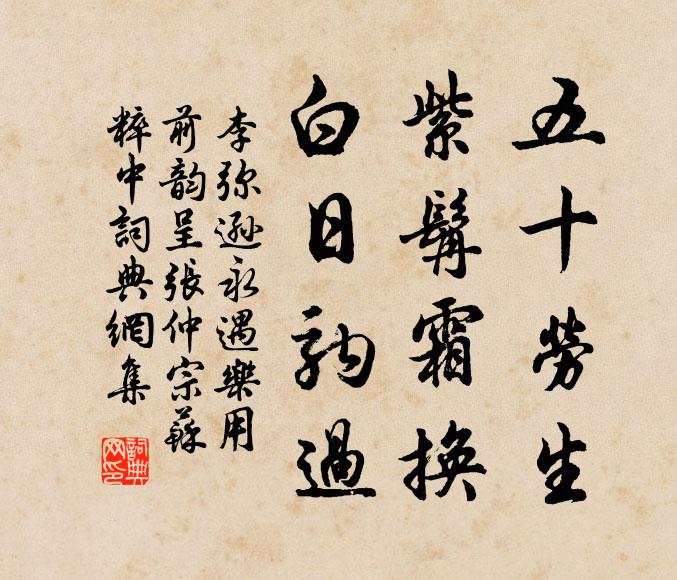 五十劳生
紫髯霜换
白日驹过
李弥逊永遇乐用
前韵呈张仲宗苏
粹中词典网集
词典网印